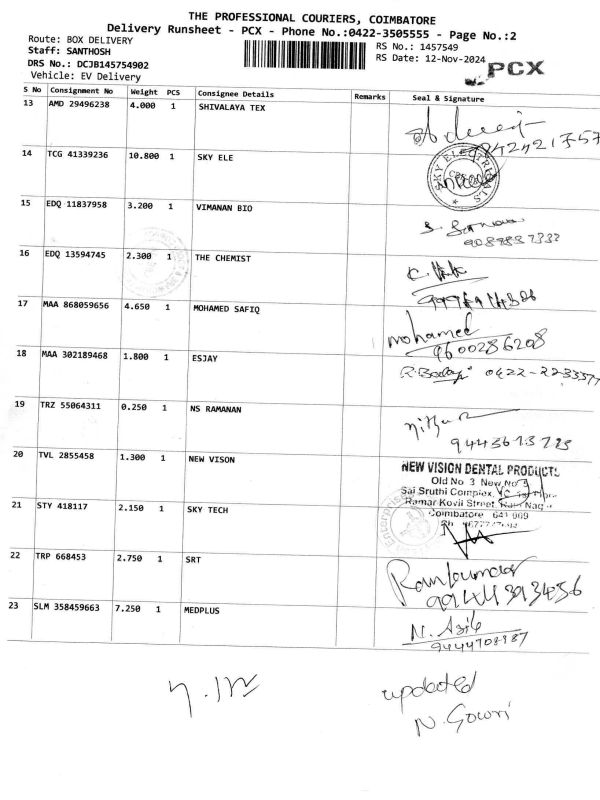 THE PROFESSIONAL COURIERS, COIMBATORE
Delivery Runsheet - PCX - Phone No.:0422-3505555 - Page No.:2
Route: BOX DELIVERY
RS No.: 1457549
Staff: SANTHOSH
RS Date: 12-Nov-2024
DRS No.: DCJB145754902
PCX
Vehicle: EV Delivery
S No Consignment No Weight PCS Consignee Details Remarks Seal & Signature
13 AMD 29496238 4.000 1 SHIVALAYA TEX
14 TCG 41339236 10.800 1 SKY ELE
SKY ELECTRICALS
15 EDQ 11837958 3.200 1 VIMANAN BIO
16 EDQ 13594745 2.300 1 THE CHEMIST
17 MAA 868059656 4.650 1 MOHAMED SAFIQ
mohamed
9600286208
18 MAA 302189468 1.800 1 ESJAY
0422-223377
19 TRZ 55064311 0.250 1 NS RAMANAN
20 TVL 2855458 1.300 1 NEW VISON
NEW VISION DENTAL PRODUCTS
Old No 3 New No 5
Sai Sruthi Complex,
Ramar Kovil Street, Ram Nagar
Coimbatore 641 009
21 STY 418117 2.150 1 SKY TECH
22 TRP 668453 2.750 1 SRT
Ramkumar
9944393456
23 SLM 358459663 7.250 1 MEDPLUS
updated
N. Gowri